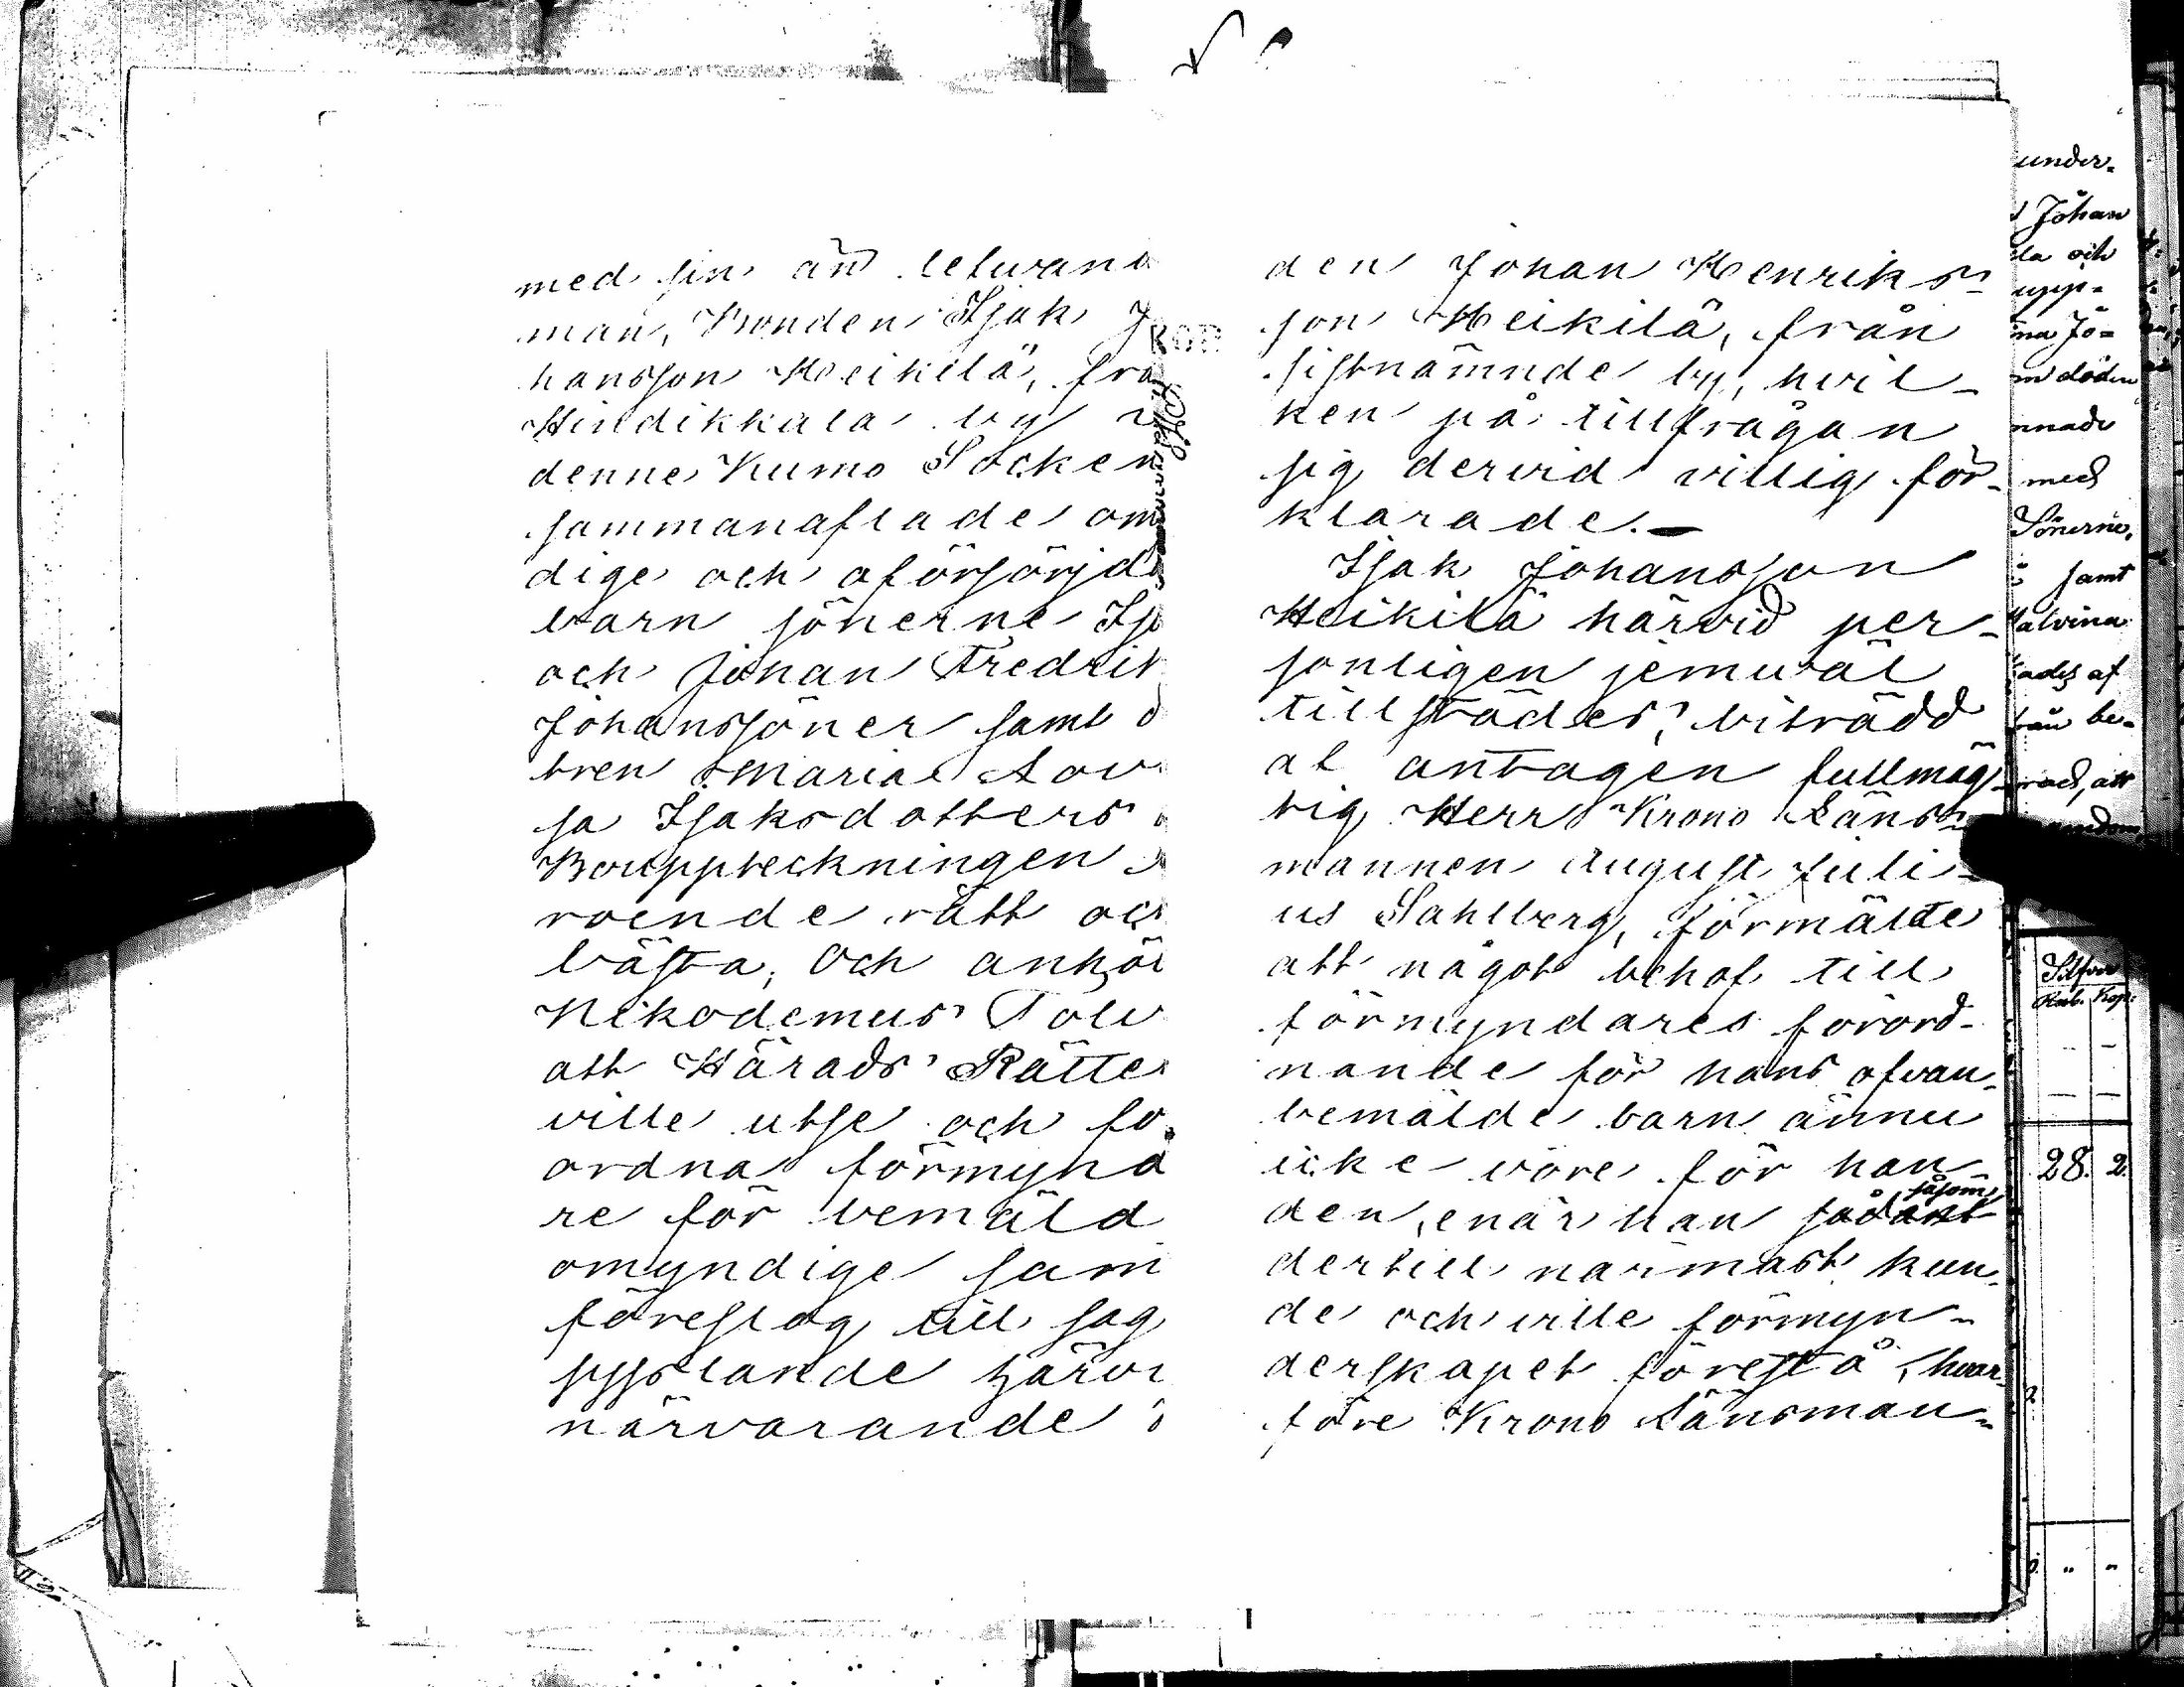 med sin än lefvand
man, Bonden Isak J
hansson Heikilä, frå
Hindikkala by i
denne Kumo Socken
sammanaflade om
dige och oförsörjd
barn sönerne Is
och Johan Fredrik
Johanssöner samt d
tren Maria Lov
sa Isaksdotters
Bouppteckningen
roende rätt och
bästa; Och anhör
Nikodemus Tolv
att Härads Rätte
ville utse och fö
ordna förmynd
re för bemäld
omyndige sam
föreslog till sag
sysslande härvi
närvarande
den Johan Henriks-
son Heikilä, från
sistnämnde by, hvil-
ken på tillfrågan
sig dervid villig för-
klarade.—
Isak Johansson
Heikilä härvid per-
sonligen jemväl
tillstädes, biträdd
af antagen fullmäg-
tig Herr Krono Läns-
mannen August Juli-
us Sahlberg, förmälte
att något behof till
förmyndares förord-
nande för hans ofvan-
bemälde barn ännu
icke vore för han-
såsom
den, enär han sådant
dertill närmast kun-
de och ville förmyn-
derskapet förestå, hvar-
före Krono Länsman-
under-
Johan
la och
upp-
na Jo-
m döden
nnade
med
Sönerne,
samt
alvina
ades af
från be-
rad, att
Silfver
Rub. Kop:
28. 2.